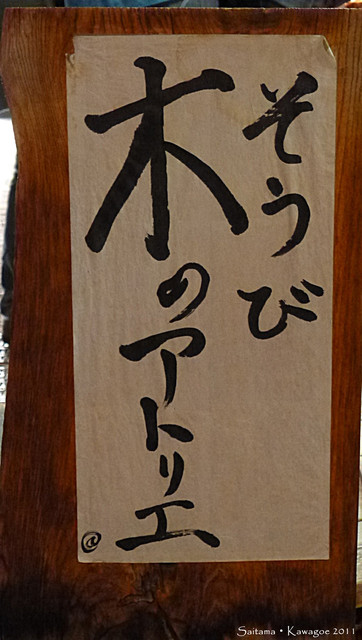 そうび
木のアトリエ
@
Saitama • Kawagoe 2011